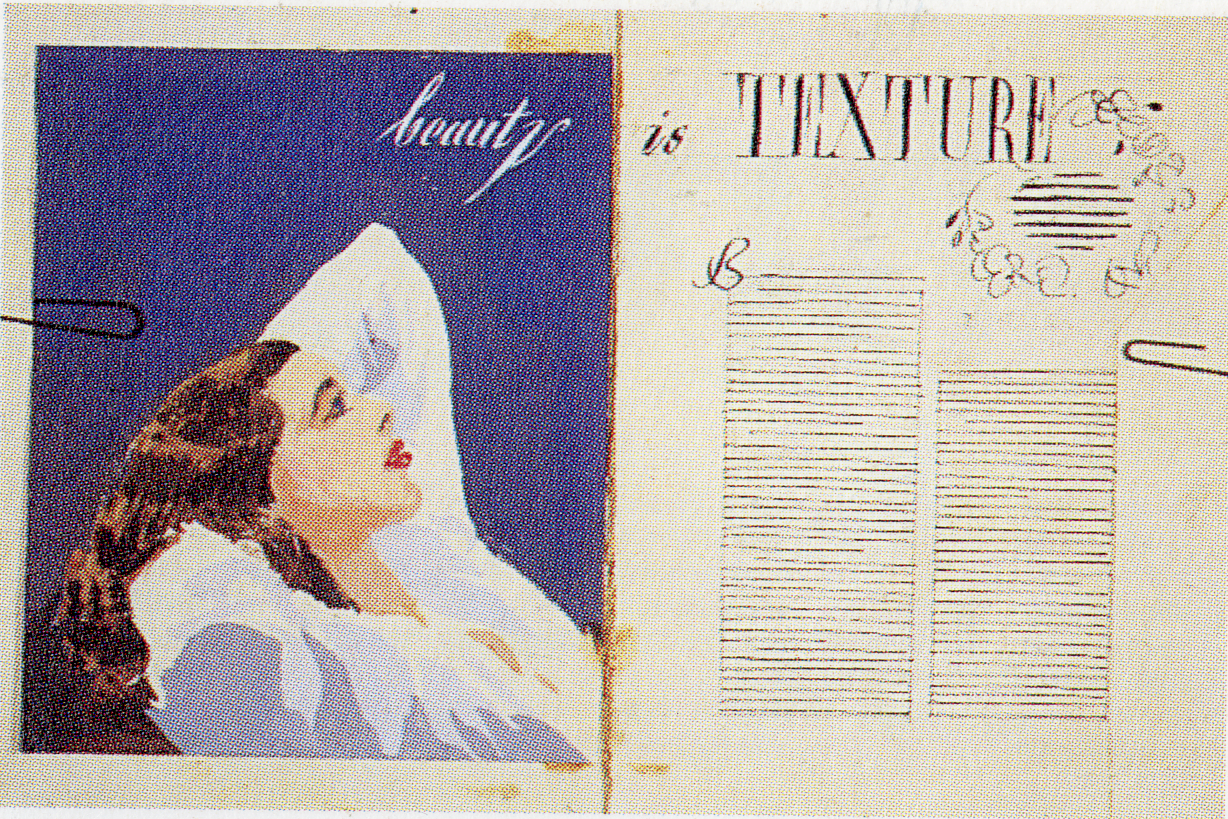 beauty is TEXTURE
B